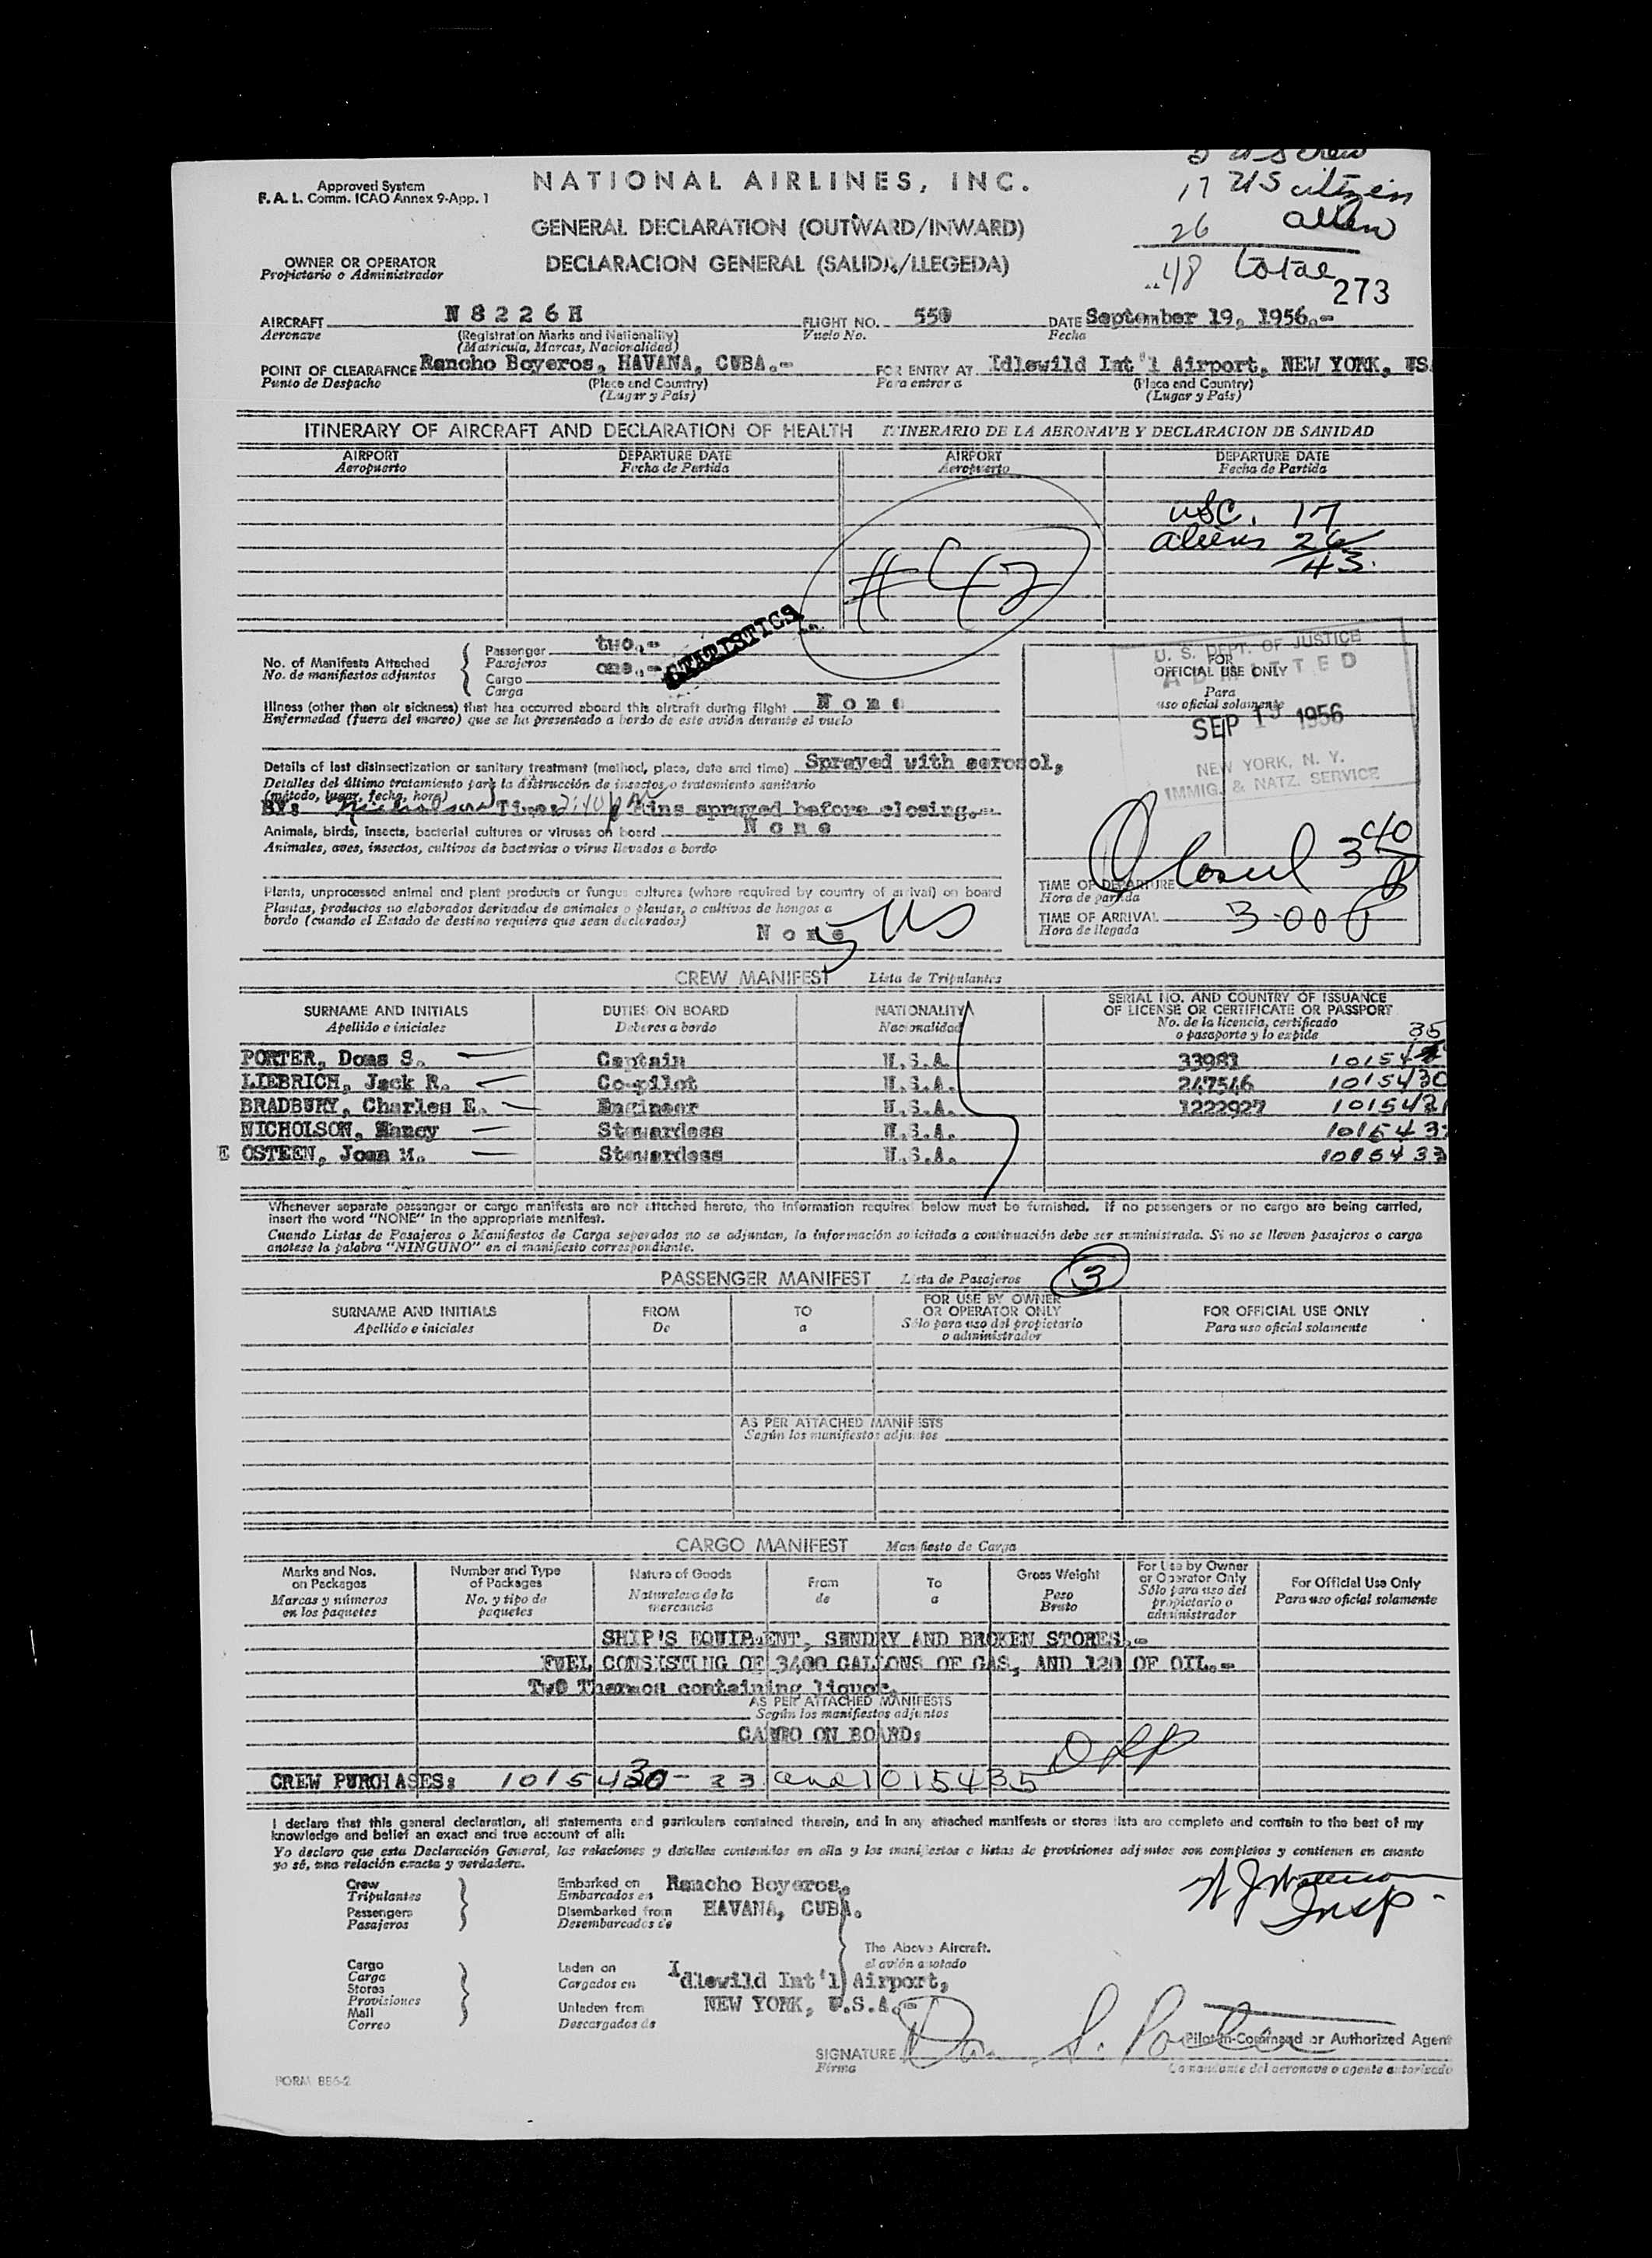 Approved System
F. A. L. Comm. ICAO Annex 9-App. 1
NATIONAL AIRLINES, INC.
GENERAL DECLARATION (OUTWARD/INWARD)
DECLARACION GENERAL (SALIDA/LLEGEDA)
OWNER OR OPERATOR
Propietario o Administrador
5 US crew
17 US citizen
26 alien
48 total
273
AIRCRAFT N 8 2 2 6 H FLIGHT NO. 550 DATE September 19, 1956.-
Aeronave (Registration Marks and Nationality) Vuelo No. Fecha
(Matricula, Marcas, Nacionalidad)
POINT OF CLEARAFNCE Rancho Boyeros, HAVANA, CUBA.- FOR ENTRY AT Idlewild Int'l Airport, NEW YORK, US
Punto de Despacho (Place and Country) Para entrar a (Place and Country)
(Lugar y País) (Lugar y País)
ITINERARY OF AIRCRAFT AND DECLARATION OF HEALTH ITINERARIO DE LA AERONAVE Y DECLARACION DE SANIDAD
AIRPORT DEPARTURE DATE AIRPORT DEPARTURE DATE
Aeropuerto Fecha de Partida Aeropuerto Fecha de Partida
USC. 17
aliens 26
43.
#42
STATISTICS
No. of Manifests Attached
No. de manifiestos adjuntos
Passenger two.-
Pasajeros
Cargo one.-
Carga
Illness (other than air sickness) that has occurred aboard this aircraft during flight N o n e
Enfermedad (fuera del mareo) que se ha presentado a bordo de este avión durante el vuelo
Details of last disinsectization or sanitary treatment (method, place, date and time) Sprayed with aerosol,
Detalles del último tratamiento para la distrucción de insectos o tratamiento sanitario
(método, lugar, fecha, hora)
BY: Nicholson Time: 2:40 pm Mins sprayed before closing.-
Animals, birds, insects, bacterial cultures or viruses on board N o n e
Animales, aves, insectos, cultivos de bacterias o virus llevados a bordo
Plants, unprocessed animal and plant products or fungus cultures (where required by country of arrival) on board
Plantas, productos no elaborados derivados de animales o plantas, o cultivos de hongos a
bordo (cuando el Estado de destino requiere que sean declarados)
N o n e
5 US
FOR
OFFICIAL USE ONLY
Para
uso oficial solamente
U. S. DEPT. OF JUSTICE
ADMITTED
SEP 19 1956
NEW YORK, N. Y.
IMMIG. & NATZ. SERVICE
Closed 3 40 P
TIME OF DEPARTURE
Hora de partida
TIME OF ARRIVAL 3 00 P
Hora de llegada
CREW MANIFEST Lista de Tripulantes
SURNAME AND INITIALS DUTIES ON BOARD NATIONALITY SERIAL NO. AND COUNTRY OF ISSUANCE
OF LICENSE OR CERTIFICATE OR PASSPORT
Apellido e iniciales Deberes a bordo Nacionalidad No. de la licencia, certificado
o pasaporte y lo expide
35
PORTER, Doms S. Captain U.S.A. 33981 10154
LIEBRICH, Jack R. Co-pilot U.S.A. 247546 1015430
BRADBURY, Charles E. Engineer U.S.A. 1222927 1015431
NICHOLSON, Nancy Stewardess U.S.A. 101543
E OSTEEN, Joan M. Stewardess U.S.A. 1015433
Whenever separate passenger or cargo manifests are not attached hereto, the information required below must be furnished. If no passengers or no cargo are being carried,
insert the word "NONE" in the appropriate manifest.
Cuando Listas de Pasajeros o Manifiestos de Carga separados no se adjuntan, la información solicitada a continuación debe ser suministrada. Si no se lleven pasajeros o carga
anotese la palabra "NINGUNO" en el manifiesto correspondiente.
PASSENGER MANIFEST Lista de Pasajeros
3
SURNAME AND INITIALS FROM TO FOR USE BY OWNER
OR OPERATOR ONLY FOR OFFICIAL USE ONLY
Apellido e iniciales De a Sólo para uso del propietario
o administrador Para uso oficial solamente
AS PER ATTACHED MANIFESTS
Según los manifiestos adjuntos
CARGO MANIFEST Manifiesto de Carga
Marks and Nos.
on Packages
Marcas y números
en los paquetes
Number and Type
of Packages
No. y tipo de
paquetes
Nature of Goods
Naturaleza de la
mercancia
From
de
To
a
Gross Weight
Peso
Bruto
For Use by Owner
or Operator Only
Sólo para uso del
propietario o
administrador
For Official Use Only
Para uso oficial solamente
SHIP'S EQUIPMENT, SUNDRY AND BROKEN STORES.-
FUEL CONSISTING OF 3400 GALLONS OF GAS, AND 120 OF OIL.-
Two Thermos containing liquor.
AS PER ATTACHED MANIFESTS
Según los manifiestos adjuntos
CARGO ON BOARD:
CREW PURCHASES: 1015430-33 and 1015435
I declare that this general declaration, all statements and particulars contained therein, and in any attached manifests or stores lists are complete and contain to the best of my
knowledge and belief an exact and true account of all:
Yo declaro que esta Declaración General, las relaciones y detalles contenidos en ella y los manifiestos o listas de provisiones adjuntos son completos y contienen en cuanto
yo sé, una relación exacta y verdadera.
Crew
Tripulantes
Passengers
Pasajeros
Embarked on Rancho Boyeros,
Embarcados en
Disembarked from HAVANA, CUBA.
Desembarcados de
Insp.
The Above Aircraft.
el avión anotado
Cargo
Carga
Stores
Provisiones
Mail
Correo
Laden on Idlewild Int'l Airport,
Cargados en
Unladen from NEW YORK, U.S.A.-
Descargados de
SIGNATURE Don S. Porter Pilot-in-Command or Authorized Agent
Firma Comandante del aeronave o agente autorizado
FORM 886-2